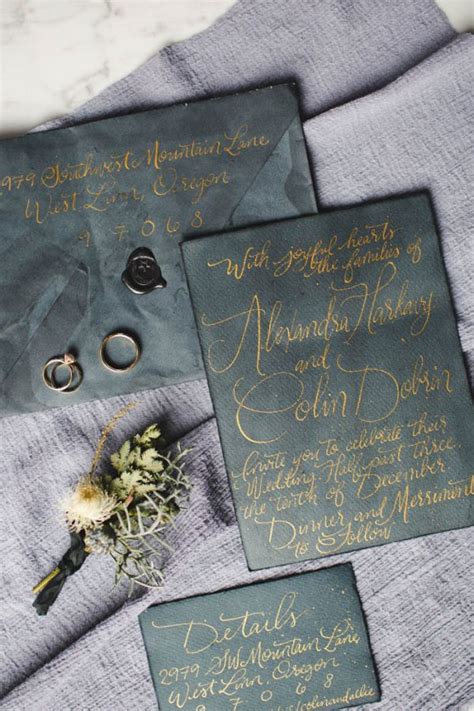 2979 Southwest Mountain Lane
West Linn, Oregon
97068
With joyful hearts
the families of
Alexandra Harkavy
and
Colin Dobrin
Invite you to celebrate their
Wedding Half past three,
the tenth of December
Dinner and Merriment
to Follow
Details
2979 SW Mountain Lane
West Linn, Oregon
97068